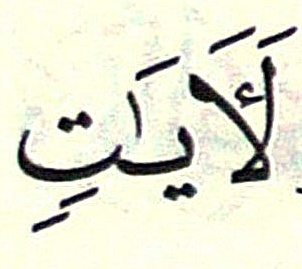 لَأَيَاتٍ